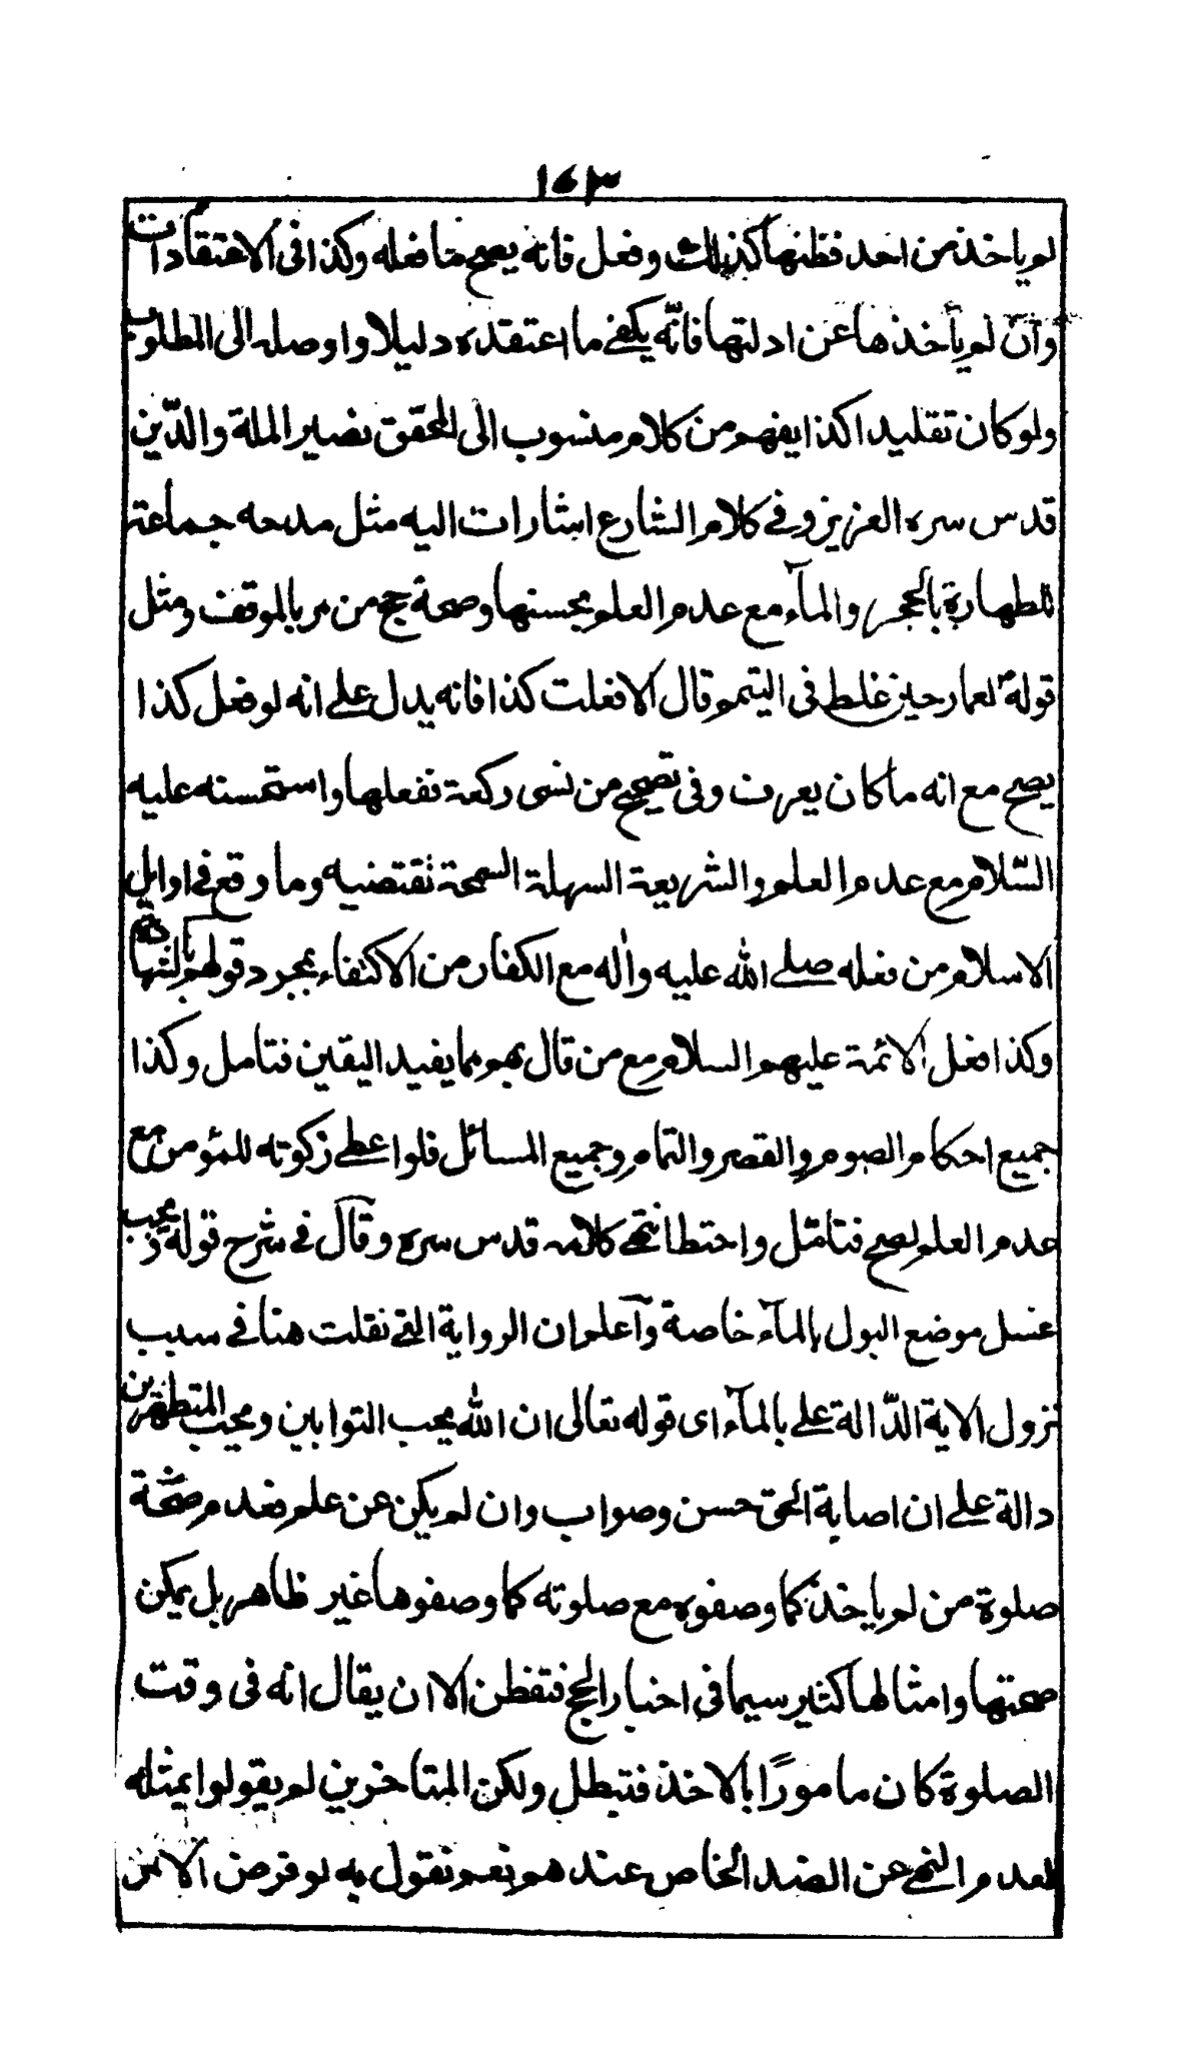 ١٤٣
لم ياخذ من احد فظنها كذلك وفعل فانه يصح ما فعله وكذا فى الاعتقادات
وان لم ياخذها عن ادلتها فانّه يكفى ما اعتقده دليلا واوصله الى المطلوب
ولو كان تقليدا كذا يفهم من كلام منسوب الى المحقق نصير الملة والدّين
قدس سره العزيز وفى كلام الشارع اشارات اليه مثل مدحه جماعة
للطهارة بالحجر والمآء مع عدم العلم بحسنها وصحة حج من مر بالموقف ومثل
قوله لعمار حين غلط فى التيمم قال الا فعلت كذا فانه يدل على انه لو فعل كذا
يصح مع انه ما كان يعرف وفى تصحيح من نسى ركعة نفعلها واستحسنه عليه
السّلام مع عدم العلم والشريعة السهلة السمحة تقتضيه وما وقع فى اوايل
الاسلام من فعله صلى الله عليه واله مع الكفار من الاكتفاء بمجرد قولهم بالشهادة
وكذا فعل الائمة عليهم السلام مع من قال بهم بما يفيد اليقين فتامل وكذا
جميع احكام الصوم والقصر والتمام وجميع المسائل فلو اعطى زكوته للمؤمن مع
عدم العلم لصح فتامّل واحتط انتهى كلامه قدس سره وقال فى شرح قوله ويجب
غسل موضع البول بالمآء خاصة وآعلم ان الرواية التى نقلت هنا فى سبب
نزول الاية الدّالة على بالمآء اى قوله تعالى ان الله يحب التوابين ويحب المتطهرين
دالة على ان اصابة الحق حسن وصواب وان لم يكن عن علم فعدم صحّة
صلوة من لم ياخذ كما وصفوه مع صلوته كما وصفوها غير ظاهر بل يمكن
صحتها وامثالها كثير سيما فى اخبار الحج فتفطن الا ان يقال انه فى وقت
الصلوة كان مامورًا بالاخذ فتبطل ولكن المتاخرين لم يقولوا بمثله
لعدم النهى عن الضد الخاص عندهم نعم نقول به لو فرض الامر